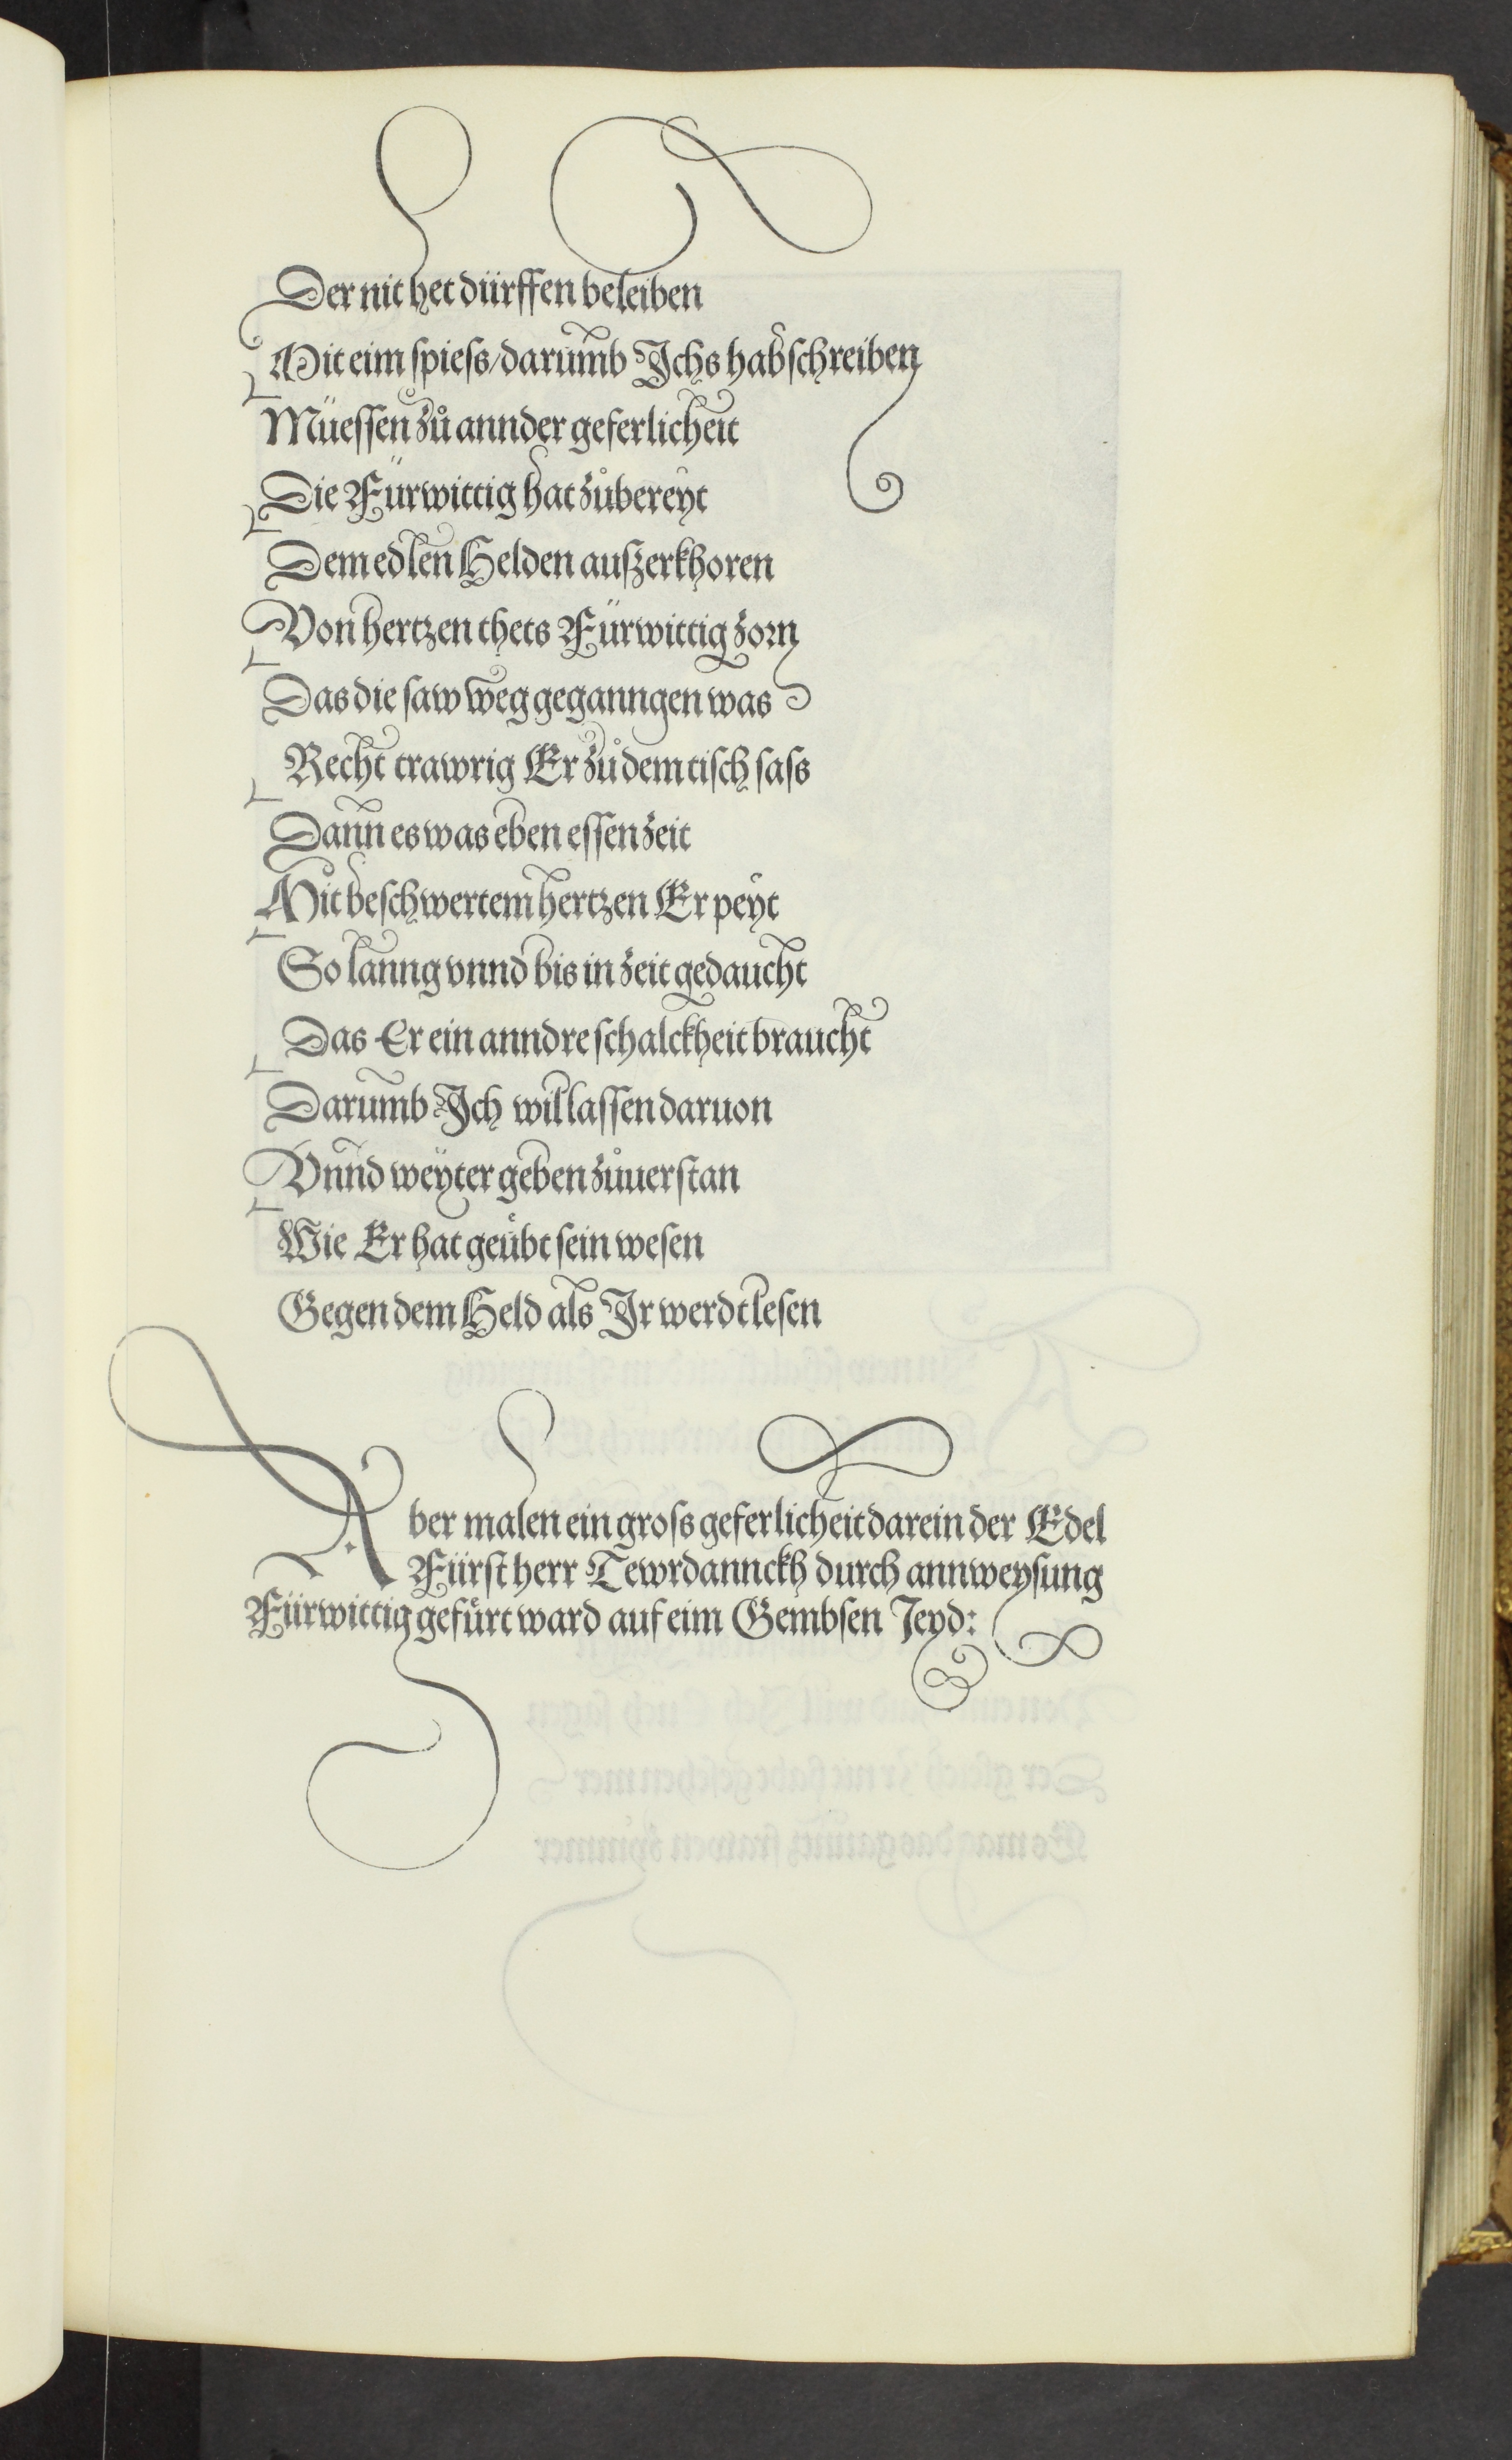 Der nit het dürffen beleiben
Mit eim ſpieſs/darumb Ichs hab ſchreiben
Müeſſen zů annder geferlicheit
Die Fürwittig hat zůbereyt
Dem edlen Helden auſzerkhoren
Von hertzen thets Fürwittig zorn
Das die ſaw weg geganngen was
Recht trawrig Er zů dem tiſch ſaſs
Dann es was eben eſſen zeit
Mit beſchwertem hertzen Er peyt
So lanng vnnd bis in zeit gedaucht
Das Er ein anndre ſchalckheit braucht
Darumb Ich wil laſſen daruon
Vnnd weyter geben zůuerſtan
Wie Er hat geübt ſein weſen
Gegen dem Held als Ir werdt leſen
Aber malen ein groſs geferlicheit darein der Edel
Fürſt herr Tewrdannckh durch annweyſung
Fürwittig gefürt ward auf eim Gembſen Jeyd: